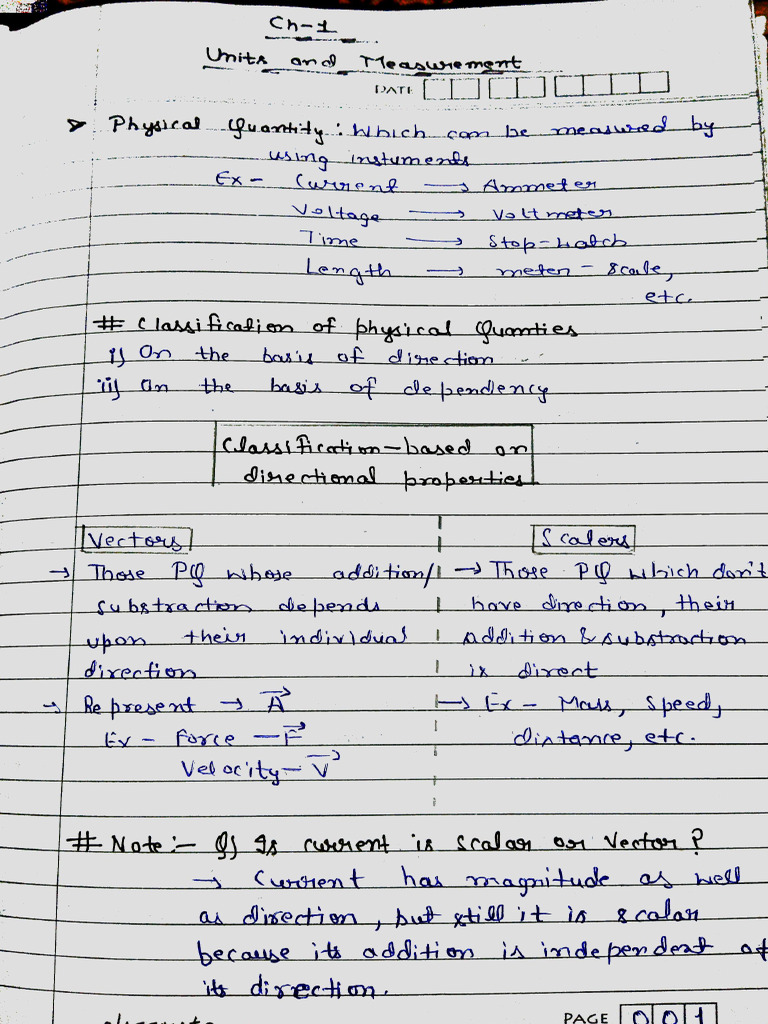 Ch-1
Units and Measurement
DATE
➤ Physical Quantity : Which can be measured by
using instuments
Ex - Current → Ammeter
Voltage → Voltmeter
Time → Stop-watch
Length → meter - scale,
etc.
# Classification of physical Quanties
i) On the basis of direction
ii) On the basis of dependency
Classification-based on
directional properties
Vectors
→ Those PQ whose addition/
substraction depends
upon their individual
direction
→ Represent → A⃗
Ex - Force - F⃗
Velocity - V⃗
Scalers
→ Those PQ which don't
have direction, their
addition & substraction
is direct
→ Ex - Mass, Speed,
distance, etc.
# Note :- Q) Is current is scalar or Vector ?
→ Current has magnitude as well
as direction, but still it is scalar
because its addition is independent of
its direction.
PAGE 001